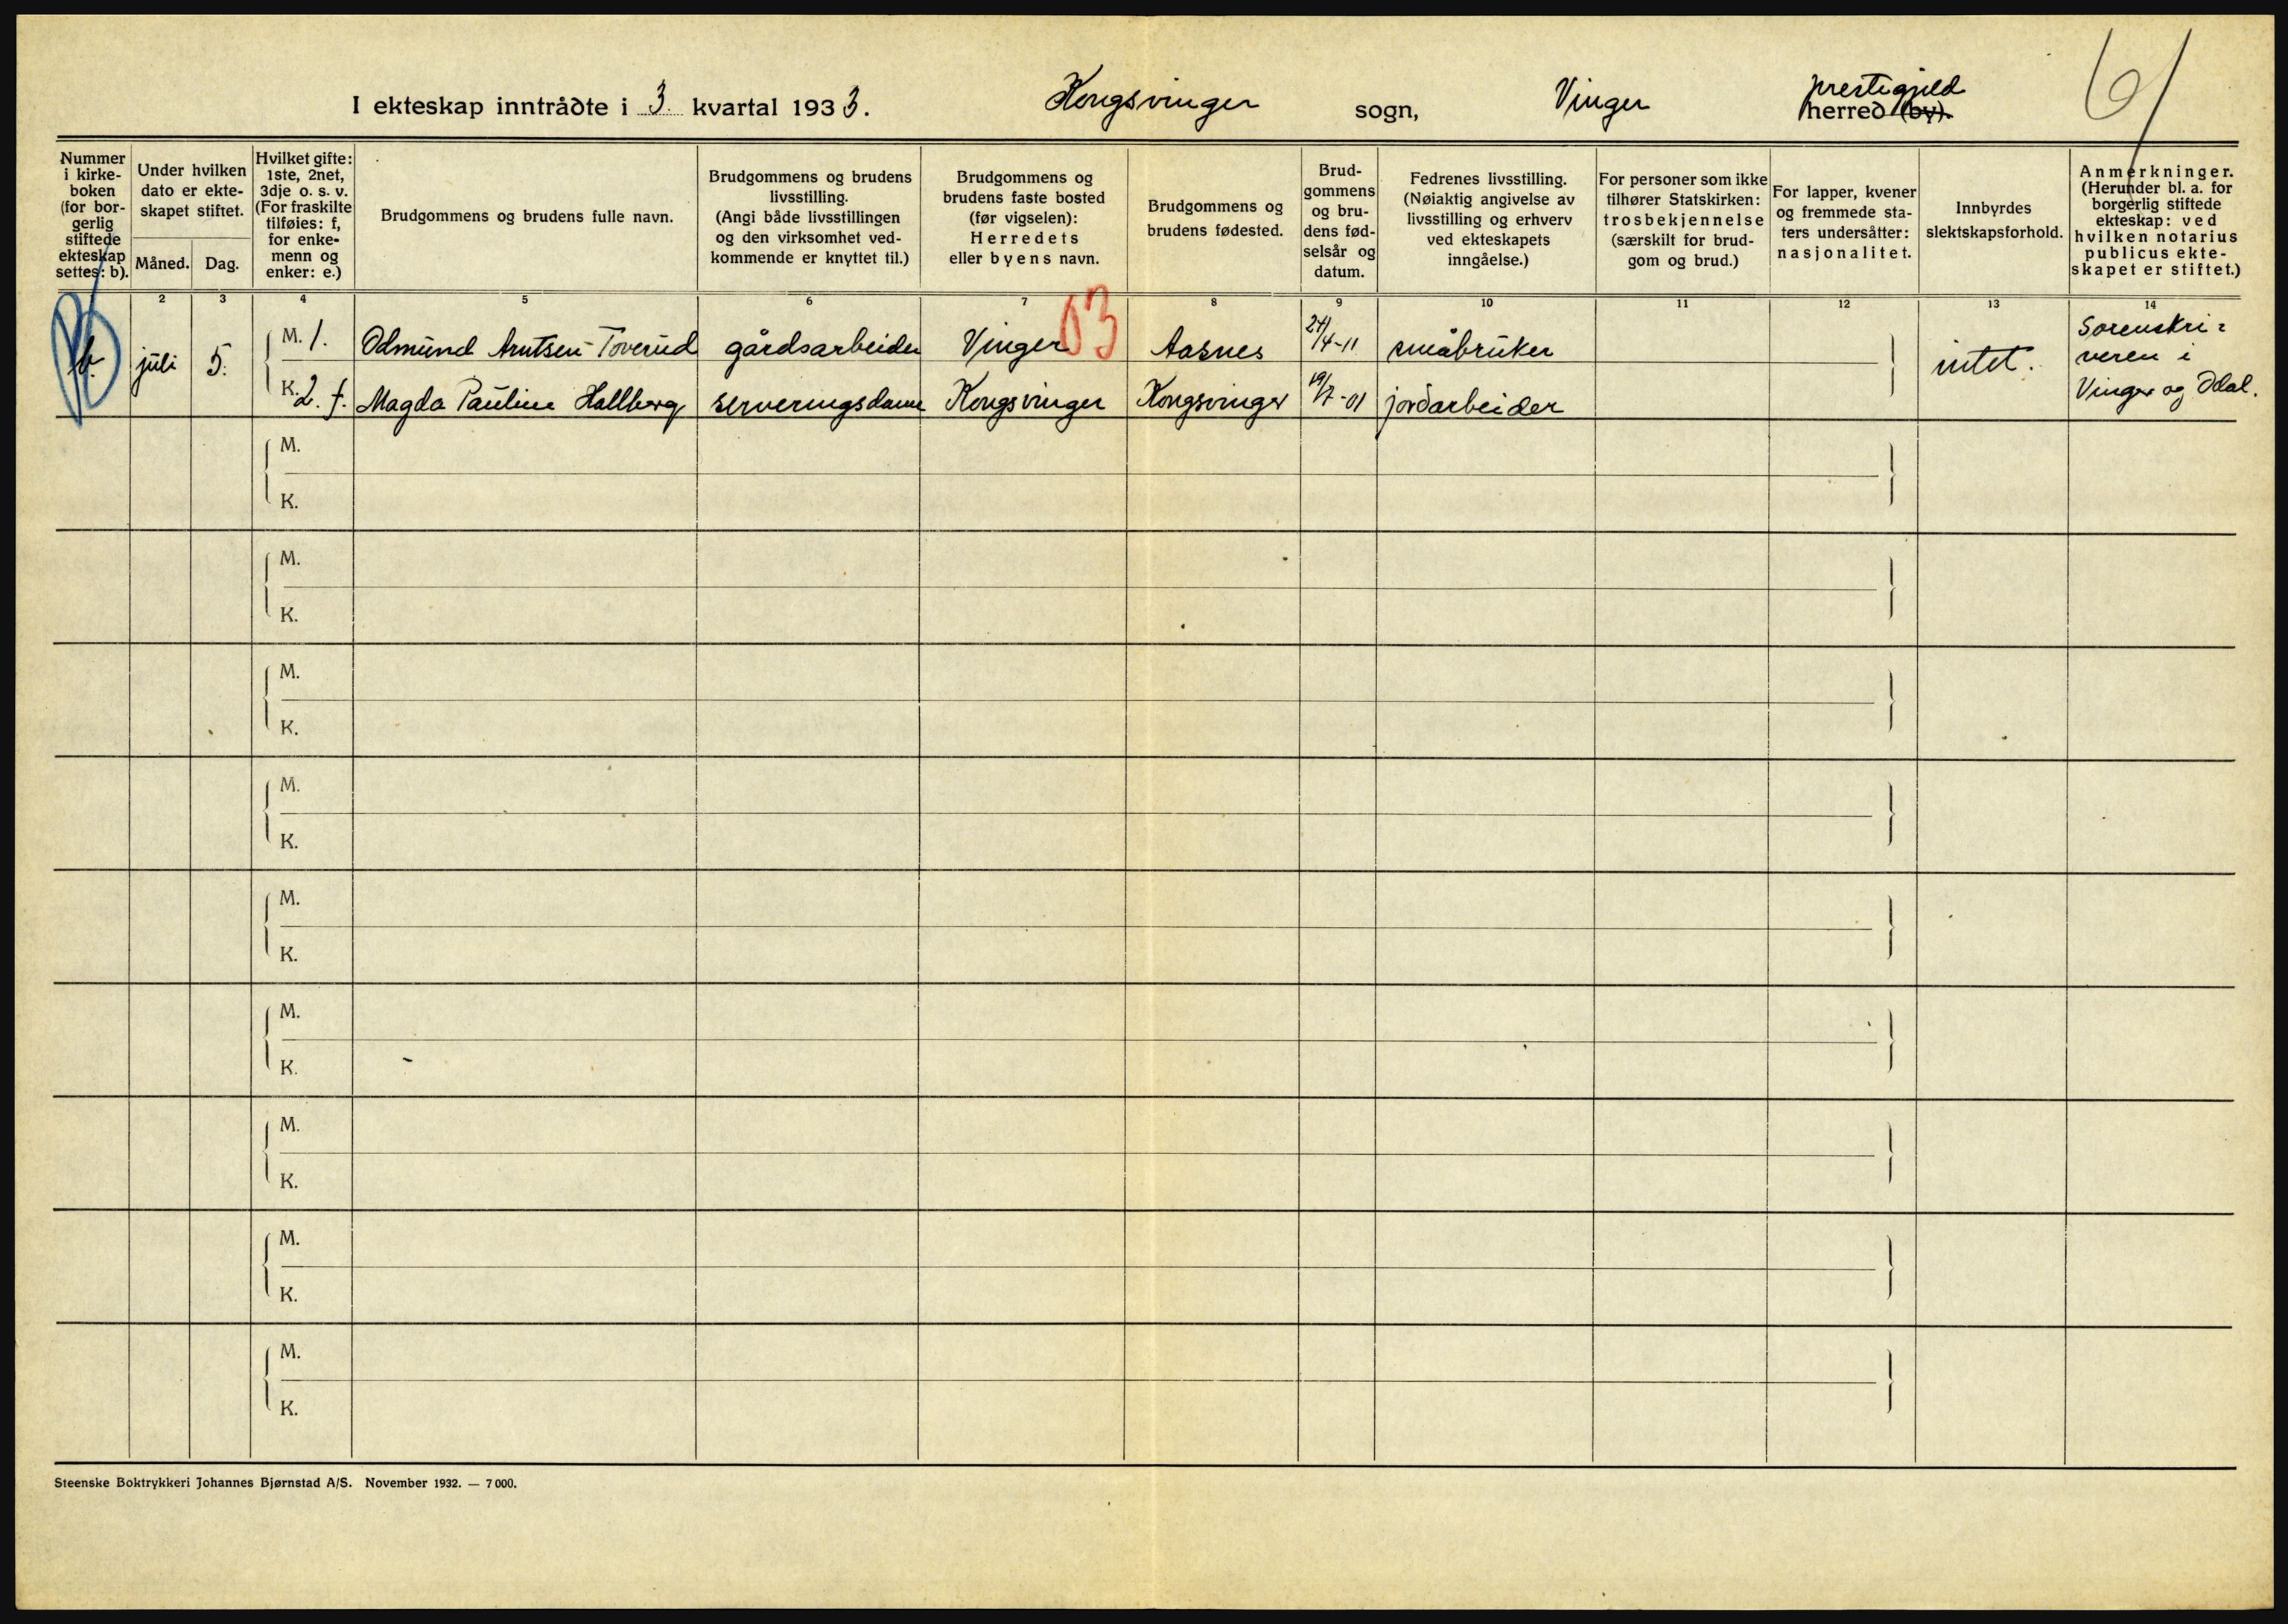 I ekteskap inntrådte i 3. kvartal 1933. Kongsvinger sogn, Vinger prestegjeld herred (by).
61
Nummer i kirke- boken (for bor- gerlig stiftede ekteskap settes: b).
Under hvilken dato er ekte- skapet stiftet.
Måned. Dag.
Hvilket gifte: 1ste, 2net, 3dje o. s. v. (For fraskilte tilføies: f, for enke- menn og enker: e.)
Brudgommens og brudens fulle navn.
Brudgommens og brudens livsstilling. (Angi både livsstillingen og den virksomhet ved- kommende er knyttet til.)
Brudgommens og brudens faste bosted (før vigselen): Herredets eller byens navn.
Brudgommens og brudens fødested.
Brud- gommens og bru- dens fød- selsår og datum.
Fedrenes livsstilling. (Nøiaktig angivelse av livsstilling og erhverv ved ekteskapets inngåelse.)
For personer som ikke tilhører Statskirken: trosbekjennelse (særskilt for brud- gom og brud.)
For lapper, kvener og fremmede sta- ters undersåtter: nasjonalitet.
Innbyrdes slektskapsforhold.
Anmerkninger. (Herunder bl. a. for borgerlig stiftede ekteskap: ved hvilken notarius publicus ekte- skapet er stiftet.)
2 3 4 5 6 7 8 9 10 11 12 13 14
03
b. juli 5. M. 1. Odmund Arntsen-Toverud gårdsarbeider Vinger Aasnes 24/4-11 småbruker intet. Sorenskri= veren i Vinger og Odal.
K. 2. f. Magda Pauline Hallberg serveringsdame Kongsvinger Kongsvinger 19/7-01 jordarbeider
M.
K.
M.
K.
M.
K.
M.
K.
M.
K.
M.
K.
M.
K.
M.
K.
M.
K.
Steenske Boktrykkeri Johannes Bjørnstad A/S. November 1932. — 7 000.